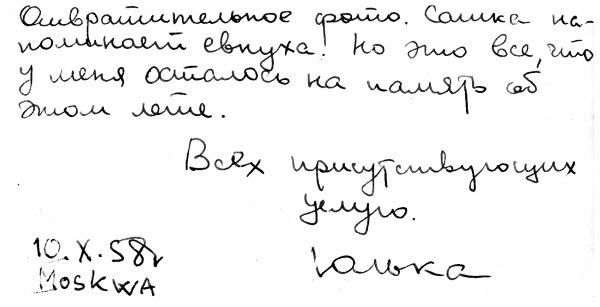 Отвратительное фото. Сашка на-
поминает евнуха! Но это все, что
у меня осталось на память об
этом лете.
Всех присутствующих
целую.
Юлька
10.X.58г
MoskwA